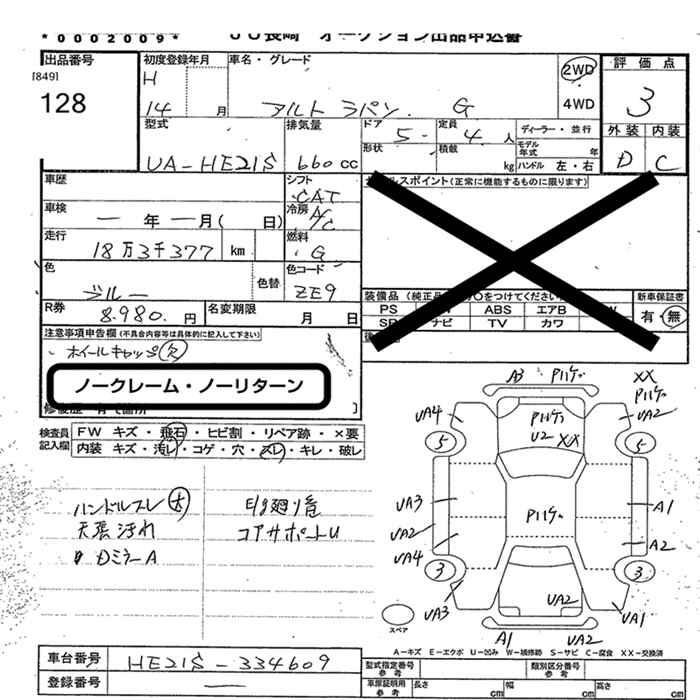 *0002009*
JU長崎 オークション出品申込書
出品番号
[849]
128
初度登録年月
H
14 月
車名・グレード
アルト ラパン G
2WD
4WD
評価点
3
外装 内装
D C
型式
UA-HE21S
排気量
660 cc
ドア
5
定員
4 人
形状
積載
kg
ディーラー・並行
モデル年式 年
ハンドル 左・右
車歴
シフト
CAT
セールスポイント(正常に機能するものに限ります)
車検
― 年 ― 月( 日)
冷房
A/C
走行
18万3千377 km
燃料
G
色
ブルー
色替
色コード
ZE9
装備品
PS ABS エアB
ナビ TV カワ
新車保証書
有・無
R券
8.980. 円
名変期限
月 日
注意事項申告欄(不具合内容等は具体的に記入して下さい)
ホイールキャップ欠
ノークレーム・ノーリターン
検査員記入欄
FW キズ・飛石・ヒビ割・リペア跡・×要
内装 キズ・汚レ・コゲ・穴・スレ・キレ・破レ
ハンドルスレ大
天張汚れ
DミラーA
コアサポートU
A3
UA4
XX
UA2
U2 XX
5
5
UA3
UA2
UA4
A1
A2
3
3
UA3
UA2
UA1
A1
UA2
スペア
A-キズ E-エクボ U-凹み W-補修跡 S-サビ C-腐食 XX-交換済
車台番号
HE21S-334609
登録番号
―
型式指定番号
参考
類別区分番号
参考
車庫証明用
参考
長さ cm
幅 cm
高さ cm